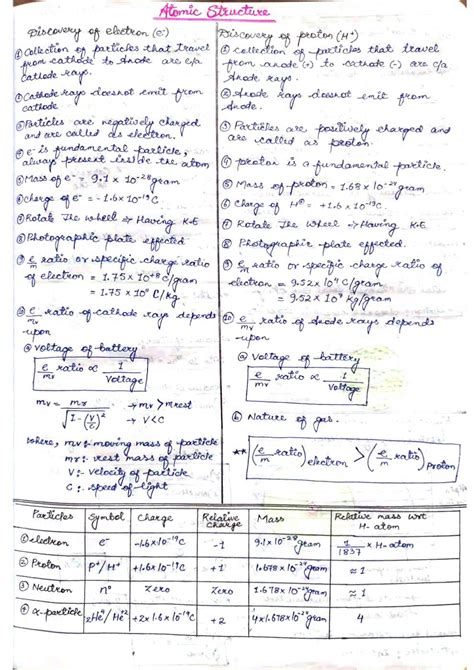 Atomic Structure
Discovery of electron (e⁻)
① Collection of particles that travel
from cathode to Anode are c/a
cathode rays.
② Cathode rays doesnot emit from
cathode
③ Particles are negatively charged
and are called as electron.
④ e⁻ is fundamental particle,
always present inside the atom
⑤ Mass of e⁻ = 9.1 × 10⁻²⁸ gram
⑥ Charge of e⁻ = -1.6 × 10⁻¹⁹ C
⑦ Rotate The wheel → Having K.E
⑧ Photographic plate effected
⑨ e/m ratio or specific charge ratio
of electron = 1.75 × 10⁺⁸ C/gram
= 1.75 × 10¹¹ C/kg
⑩ e/mv ratio of cathode rays depends
-upon
ⓐ Voltage of battery
e/mv ratio ∝ 1/Voltage
mv = mr/√(1-(V/C)²) → mv > mrest
→ V<C
where, mv:- moving mass of particle
mr:- rest mass of particle
V:- velocity of particle
C:- speed of light
Discovery of proton (H⁺)
① Collection of particles that travel
from anode (+) to cathode (-) are c/a
Anode rays.
② Anode rays doesnot emit from
Anode.
③ Particles are positively charged and
are called as proton.
④ proton is a fundamental particle.
⑤ Mass of proton = 1.68 × 10⁻²⁴ gram
⑥ Charge of H⊕ = +1.6 × 10⁻¹⁹ C.
⑦ Rotate The wheel → Having K.E
⑧ Photographic plate effected.
⑨ e/m ratio or specific charge ratio of
electron = 9.52 × 10⁴ C/gram
= 9.52 × 10⁷ C/kg
⑩ e/mv ratio of Anode rays depends
-upon
ⓐ Voltage of battery
e/mv ratio ∝ 1/Voltage
ⓑ Nature of gas.
** (e/m ratio)electron > (e/m ratio)Proton
Particles Symbol Charge Relative charge Mass Relative mass wrt H-atom
① electron e⁻ -1.6×10⁻¹⁹C -1 9.1×10⁻²⁸ gram 1/1837 × H-atom
② Proton p⁺/H⁺ +1.6×10⁻¹⁹C +1 1.678×10⁻²⁴ gram ≈ 1
③ Neutron n° zero zero 1.678×10⁻²⁴ gram ≈ 1
④ α-particle ₂He⁴/He⁺² +2×1.6×10⁻¹⁹C +2 4×1.678×10⁻²⁴ gram 4